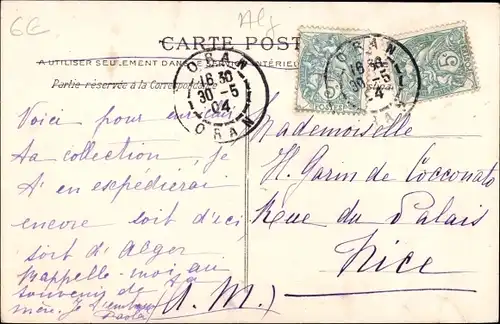 6E
Alg
CARTE POST
A UTILISER SEULEMENT DANS LE SERVICE INTÉRIEUR
Partie réservée à la Correspondance
ORAN
16.30
30-5
04
ORAN
ORAN
16.30
30-5
04
5
Voici pour
ta collection, je
t'en expédierai
encore soit d'ici,
soit d'Alger
Rappelle-moi au
souvenir de ta
mère. Je
(A.M.)
Mademoiselle
H. Garin de Cocconato
Rue du Palais
Nice